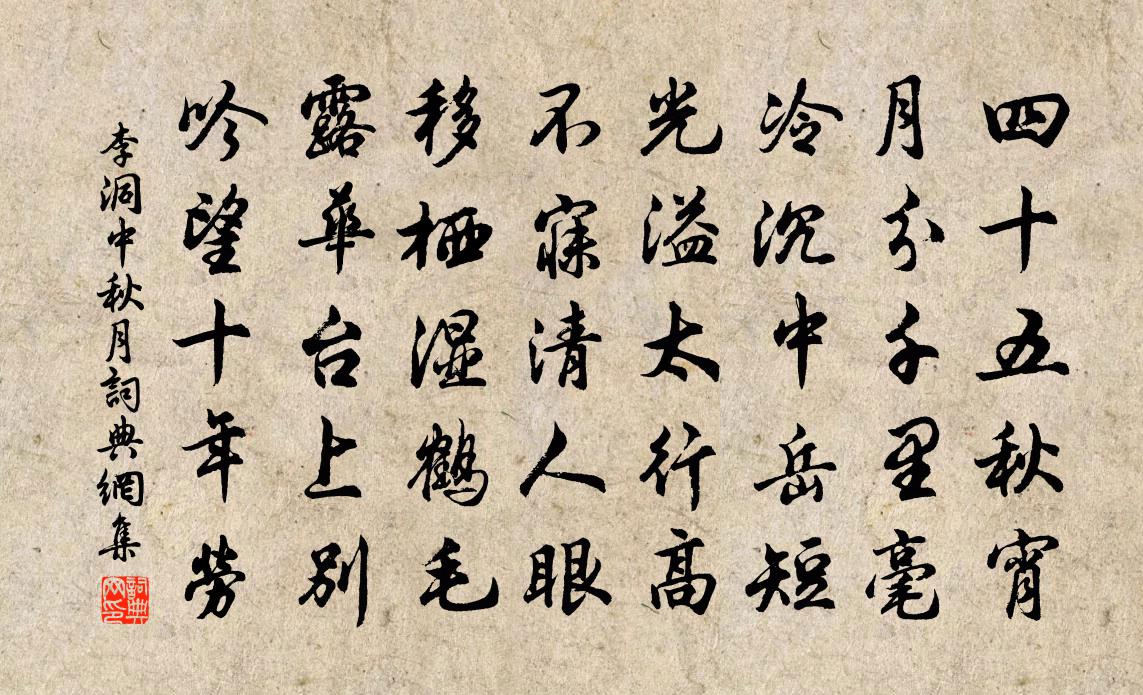 四十五秋宵
月分千里毫
冷沉中岳短
光溢太行高
不寐清人眼
移栖湿鶴毛
露華台上别
吟望十年勞
李洞中秋月詞典網集
詞典
网印